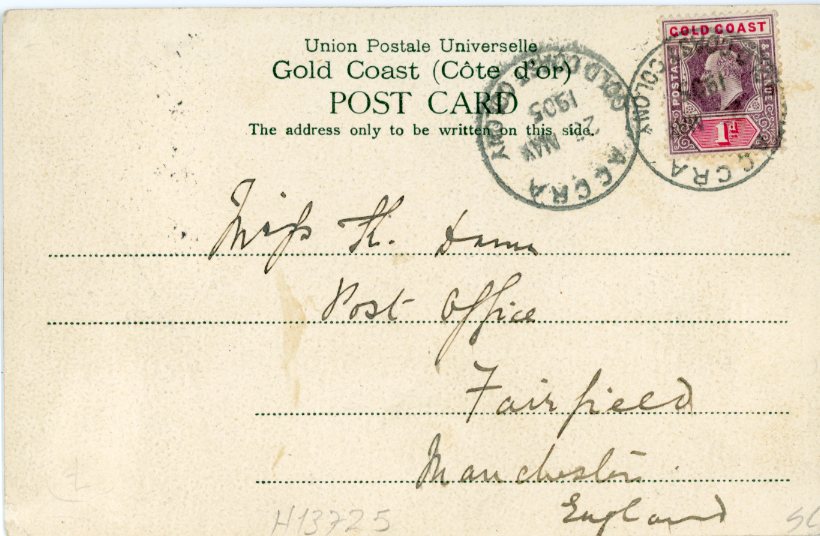 Union Postale Universelle
Gold Coast (Côte d'or)
POST CARD
The address only to be written on this side.
GOLD COAST
POSTAGE & REVENUE
1d
ACCRA
GOLD COAST COLONY
MAY
1905
ACCRA
COLONY
Miss H.
Post Office
Fairfield
Manchester
England
H13725